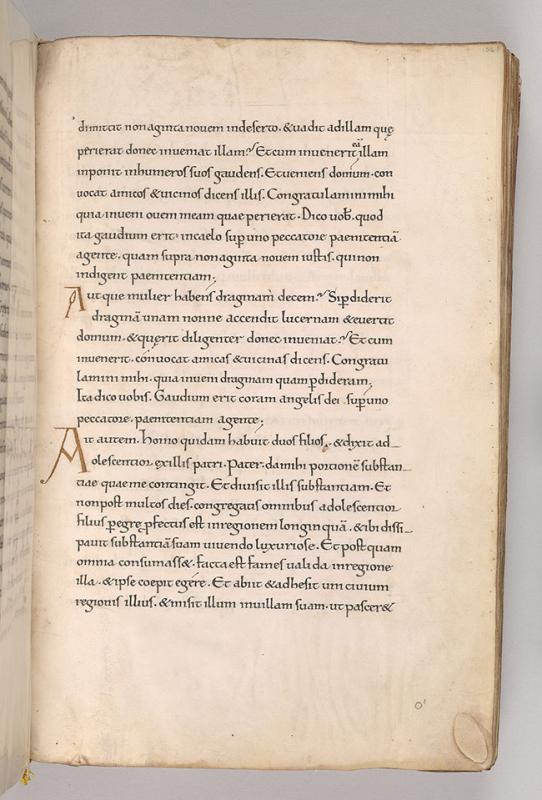 dimittit nonaginta novem indeserto. & vadit adillam quę
perierat donec inveniat illam? Et cum invenerit eā illam
inponit inhumeros suos gaudens. Et veniens domum. con
vocat amicos & vicinos dicens illis. Congratulamini mihi
quia inveni ovem meam quae perierat. Dico vob. quod
ita gaudium erit. incaelo sup uno peccatore paenitentiā
agente. quam supra nonaginta novem iustis. qui non
indigent paenitentiam;
Aut que mulier habens dragmam decem? Si pdiderit
dragmā unam nonne accendit lucernam & evertit
domum. & querit diligenter donec inveniat? Et cum
invenerit. convocat amicas & vicinas dicens. Congratu
lamini mihi. quia inveni dragmam quam pdideram;
Ita dico vobis. Gaudium erit coram angelis dei sup uno
peccatore. paenitentiam agente;
Ait autem. Homo quidam habuit duos filios. & dixit ad
olescentior exillis patri. Pater. da mihi portionē substan
tiae quae me contingit. Et divisit illis substantiam. Et
non post multos dies. congregatis omnibus adolescentior
filius pegre pfectus est inregionem longinquā. & ibi dissi
pavit substantiā suam vivendo luxuriose. Et post quam
omnia consumass&. facta est fames valida inregione
illa. & ipse coepit egere. Et abiit & adhesit uni civium
regionis illius. & misit illum invillam suam. ut pascer&